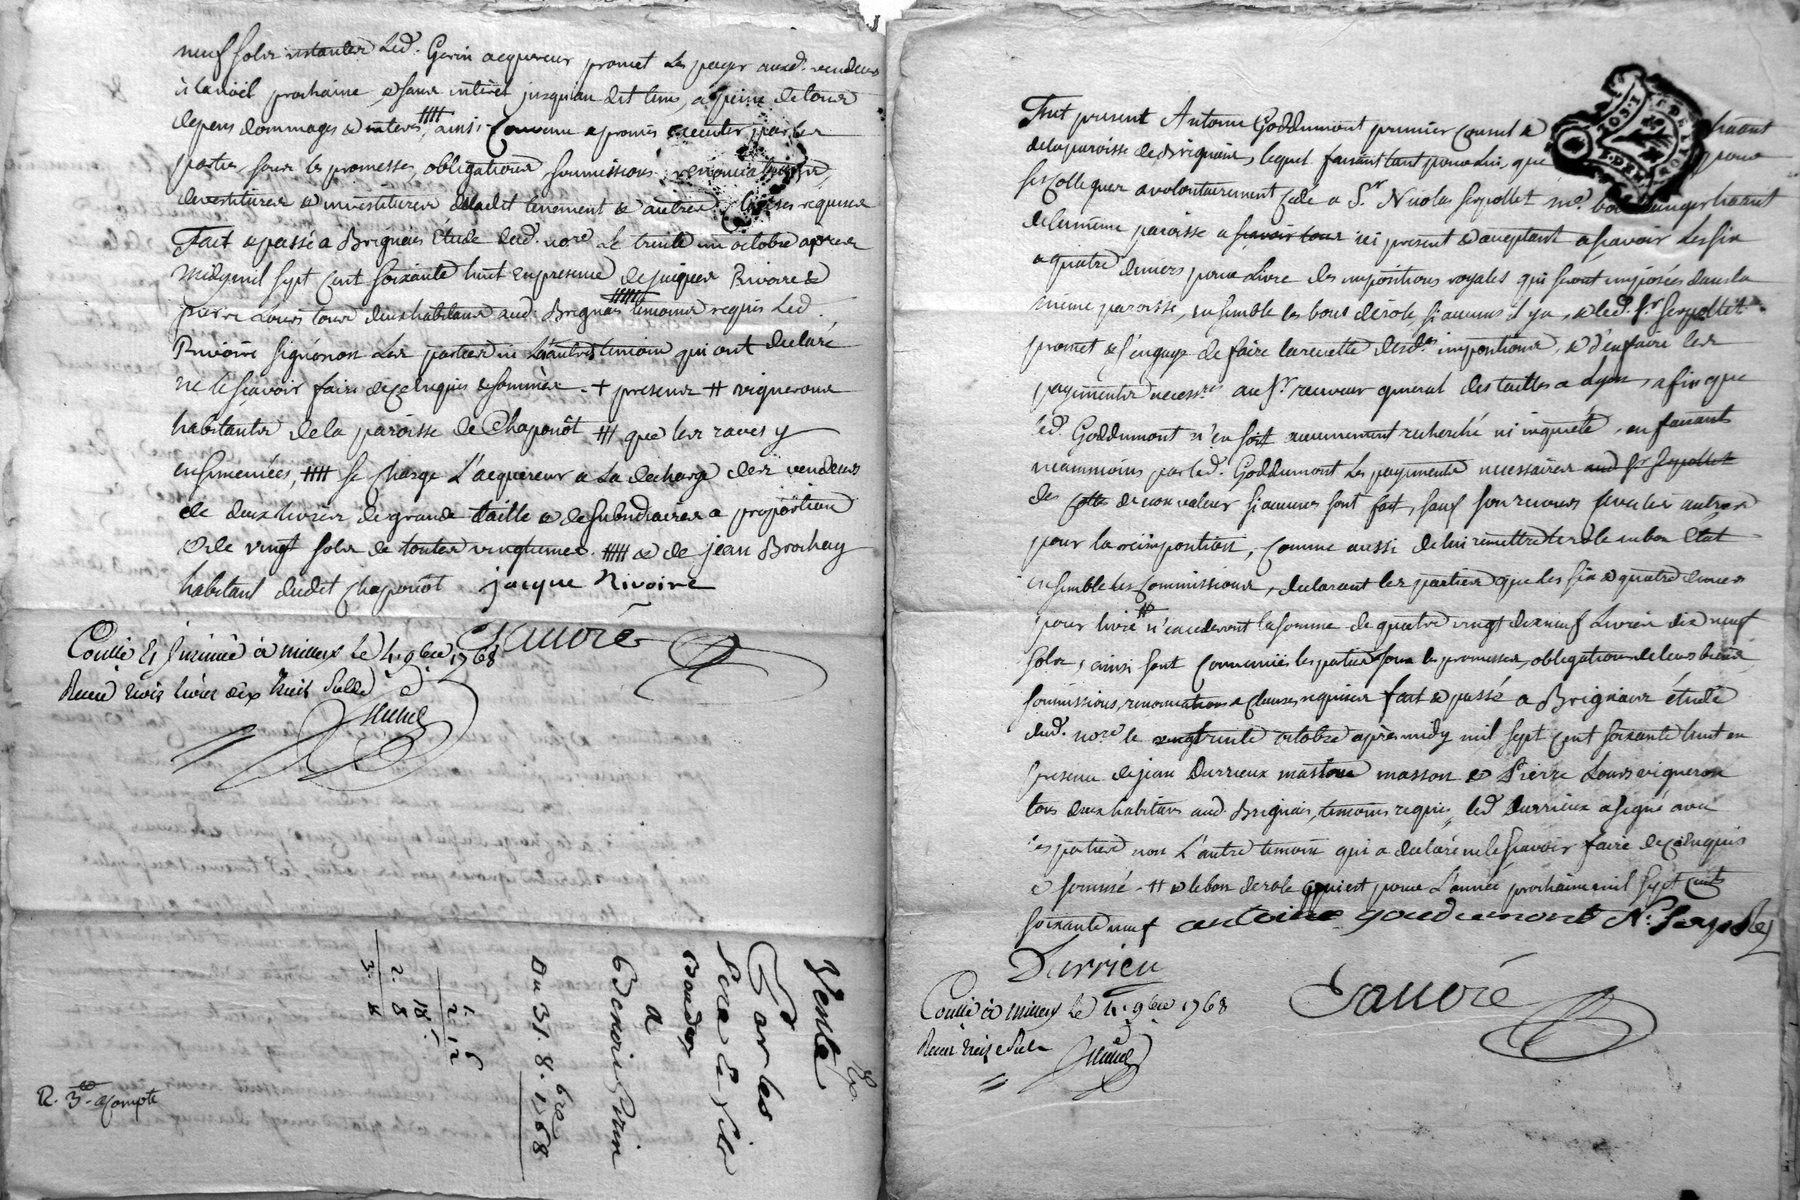 neuf sols led. Gerin acquereur promet les payer auxd. vendeurs
à la noël prochaine & sans interêt jusqu'au dit tems, a peine de tous
depens dommages & interets, ainsi convenu & promis executer par les
parties, sous les promesses, obligations, soumissions, renonciations,
devestitures & investitures dudit tenement & autres clauses requises
Fait & passé a Brignais étude dud. nore. le trente un octobre après
midy mil sept cent soixante huit en presence de jacques Rivoire &
pierre Louis tous deux habitans aud. Brignais temoins requis led.
Rivoire signé non les parties ni l'autre temoin qui ont declaré
ne le sçavoir faire de ce enquis & sommés. + presens # vignerons
habitants de la paroisse de Chaponôt # que les raves y
ensemencées, # se charge l'acquereur a la decharge des vendeurs
de deux livres de grande taille & de subsidiaires a proportion
& de vingt sols de toutes vingtiemes. # & de jean Brochay
habitant dudit Chaponôt jacque Rivoire
Sauvré
Coullé Et Insinué à millery le 4. 9bre 1768
Receu trois livres dix huit sols
R. 3# acompte
Vente
Par les
pere & fils
a
Benoit Gerin
Du 31. 8bre 1768
Fut present Antoine Goddumont premier Consul &
de la paroisse de Brignais, lequel faisant tant pour lui, que pour
ses collegues a volontairement cedé a Sr. Nicolas Serpollet me. boulanger habitant
de la même paroisse a sçavoir tous ici present & acceptant a sçavoir les six
a quatre deniers pour Livre des impositions royales qui seront imposées dans la
même paroisse, ensemble les bons de role, si aucuns il y a, & led. Sr. Serpollet
promet & s'engage de faire la recette desdes. impositions, & d'en faire les
payements necessres. au Sr. receveur general des tailles a Lyon, afin que
led. Goddumont n'en soit aucunement recherché ni inquiété, en faisant
neammoins par led. Goddumont les payements necessaires aud Sr Serpollet
des cotte de non valeur si aucunes sont fait, sauf son recours sur les autres
pour la reimposition, comme aussi de lui remettre le role en bon état
ensemble les commissions, declarant les parties que les six & quatre deniers
pour livre # n'excederont la somme de quatre vingt dix neuf Livres dix neuf
sols, ainsi sont convenues les parties sous les promesses, obligation de leurs biens,
soumissions, renonciations & clauses requises fait & passé a Brignais étude
dud. nore. le trente octobre après midy mil sept cent soixante huit en
presence de jean Durrieux masson & Pierre Louis vigneron
tous deux habitans aud. Brignais, temoins requis, led. Durrieux a signé avec
les parties non l'autre temoin qui a declaré ne le sçavoir faire de ce enquis
& sommé. # & le bon de role qui est pour l'année prochaine mil sept cent
soixante neuf antoine goudumont N. Serpollet
Durrieu
Sauvré
Coullé à millery le 4. 9bre 1768
Receu treize sols